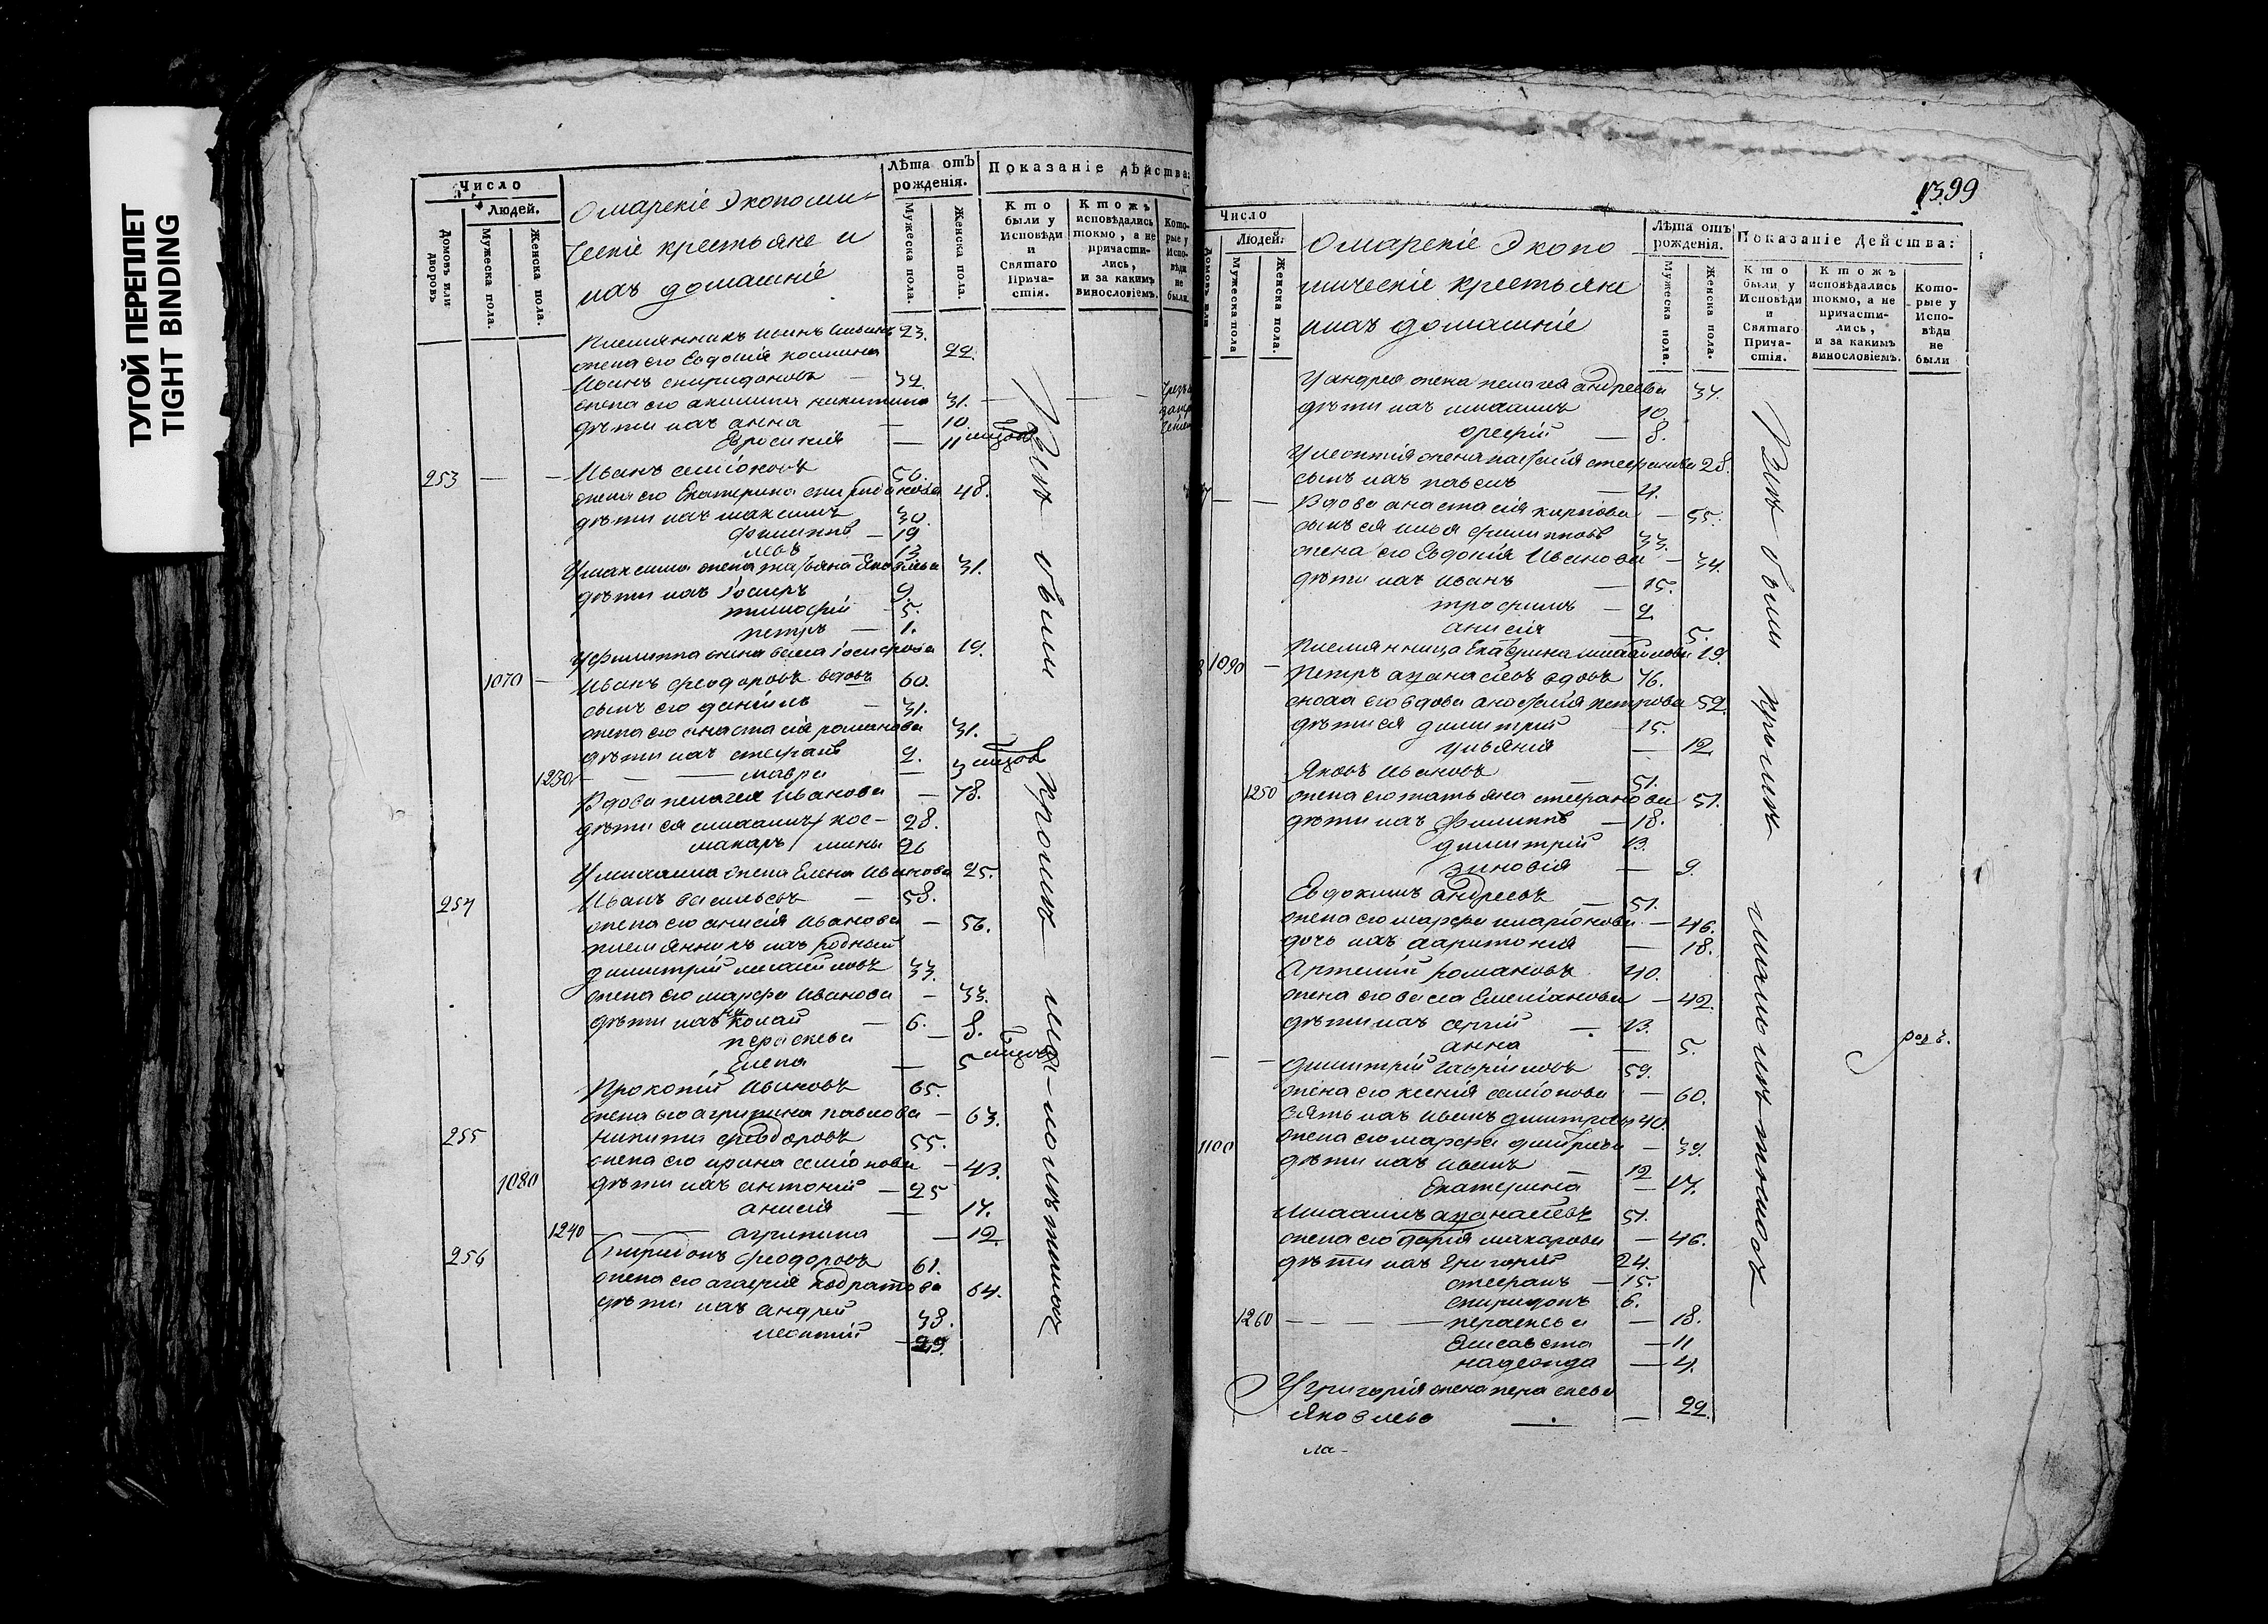 ТУГОЙ ПЕРЕПЛЕТ
TIGHT BINDING
Число
Людей.
Домовъ или дворовъ
Мужеска пола.
Женска пола.
Экономи-
ческіе крестьяне и
ихъ домашніе
Лѣта отъ рожденія.
Мужеска пола.
Женска пола.
Показаніе дѣйства:
Кто были у Исповѣди и Святаго Прича-стія.
Ктожъ исповѣдались токмо, а не причасти-лись, и за какимъ винословіемъ.
Кото-рые у Испо-вѣди не были
Племянникъ 23.
жена его Евдокія 22.
Иванъ спиридоновъ — 32.
жена его акилина никитина 31.
дѣти ихъ анна — 10.
Евросинія — 11
253 — — Иванъ семіоновъ 50.
жена его Екатерина спиридонова 48.
дѣти ихъ максимъ 30.
филиппъ — 19
левъ — 13
У максима жена татьяна Яковлева 31.
дѣти ихъ Іосифъ 9.
тимофій 5.
петръ — 1.
У филиппа жена васса Іосифова 19.
1070 — Иванъ феодоровъ вдовъ 60.
сынъ его даніилъ — 31.
жена его анастасія романова 31.
дѣти ихъ стефанъ 2.
1230 — — мавра — 3
Вдова пелагея Иванова — 78.
дѣти ея михаилъ кос- 28.
макаръ мины 26
У михаила жена Елена Иванова 25.
254 Иванъ васильевъ — 58.
жена его анисія Иванова — 56.
племянникъ ихъ родный
димитрій михайловъ 33.
жена его марфа Иванова — 33.
дѣти ихъ николай — 6.
параскева — 8.
Елена — 5
Прокопій Ивановъ 65.
жена его агрипина павлова — 63.
255 никита феодоровъ 55.
жена его ирина семіонова — 43.
1080 дѣти ихъ антоній — 25
анисія — 14.
1240 — — агрипина — 12
256 Спиридонъ феодоровъ 61.
жена его агафія кодратова 64.
дѣти ихъ андрей 38.
леонтій — 29.
Всѣ были кромѣ малолѣтнихъ
1399
Число
Людей.
Мужеска пола
Женска пола.
Эконо
мическіе крестьяне
ихъ домашніе
Лѣта отъ рожденія.
Мужеска пола.
Женска пола.
Показаніе Дѣйства:
Кто были у Исповѣди и Святаго Прича-стія.
Ктожъ исповѣдались токмо, а не причасти-лись, и за какимъ винословіемъ.
Кото-рые у Испо-вѣди не были
У андрея жена пелагея андреева 34.
дѣти ихъ михаилъ 10.
орефій — 8.
У леонтія жена настасія стефанова 28.
сынъ ихъ павелъ — 4.
— — Вдова анастасія карпова — 55.
сынъ ея илья филипповъ 33.
жена его Евдокія Иванова — 34.
дѣти ихъ Иванъ — 15.
трофимъ — 2.
анисія — 5.
Племянница Екатерина михайлова 19.
1090 — Петръ афанасьевъ вдовъ 76.
сноха его вдова анастасія петрова 52.
дѣти ея димитрій — 15.
ульянія — 12.
Яковъ Ивановъ — 51.
1250 жена его татьяна стефанова 51.
дѣти ихъ филиппъ — 18.
димитрій 13.
зиновія — 9.
Евдокимъ андреевъ — 51.
жена его марфа иларіонова — 46.
дочь ихъ харитонія — 18.
Артемій романовъ 40.
жена его васса Емеліанова — 42.
дѣти ихъ сергій — 13.
анна — 5.
— — димитрій гавріиловъ 59.
жена его ксенія семіонова — 60.
зять ихъ Иванъ димитріевъ 40.
1100 жена его марфа димитріева — 39.
дѣти ихъ Иванъ — 12
Екатерина — 14.
михаилъ афанасьевъ 51.
жена его дарія макарова — 46.
дѣти ихъ Григорій 24.
стефанъ — 15.
спиридонъ 6.
1260 — — — — параскева — 18.
Елисавета — 11
надежда — 4.
У григорія жена параскева
Яковлева — — 22.
ла-
Всѣ были кромѣ малолѣтнихъ